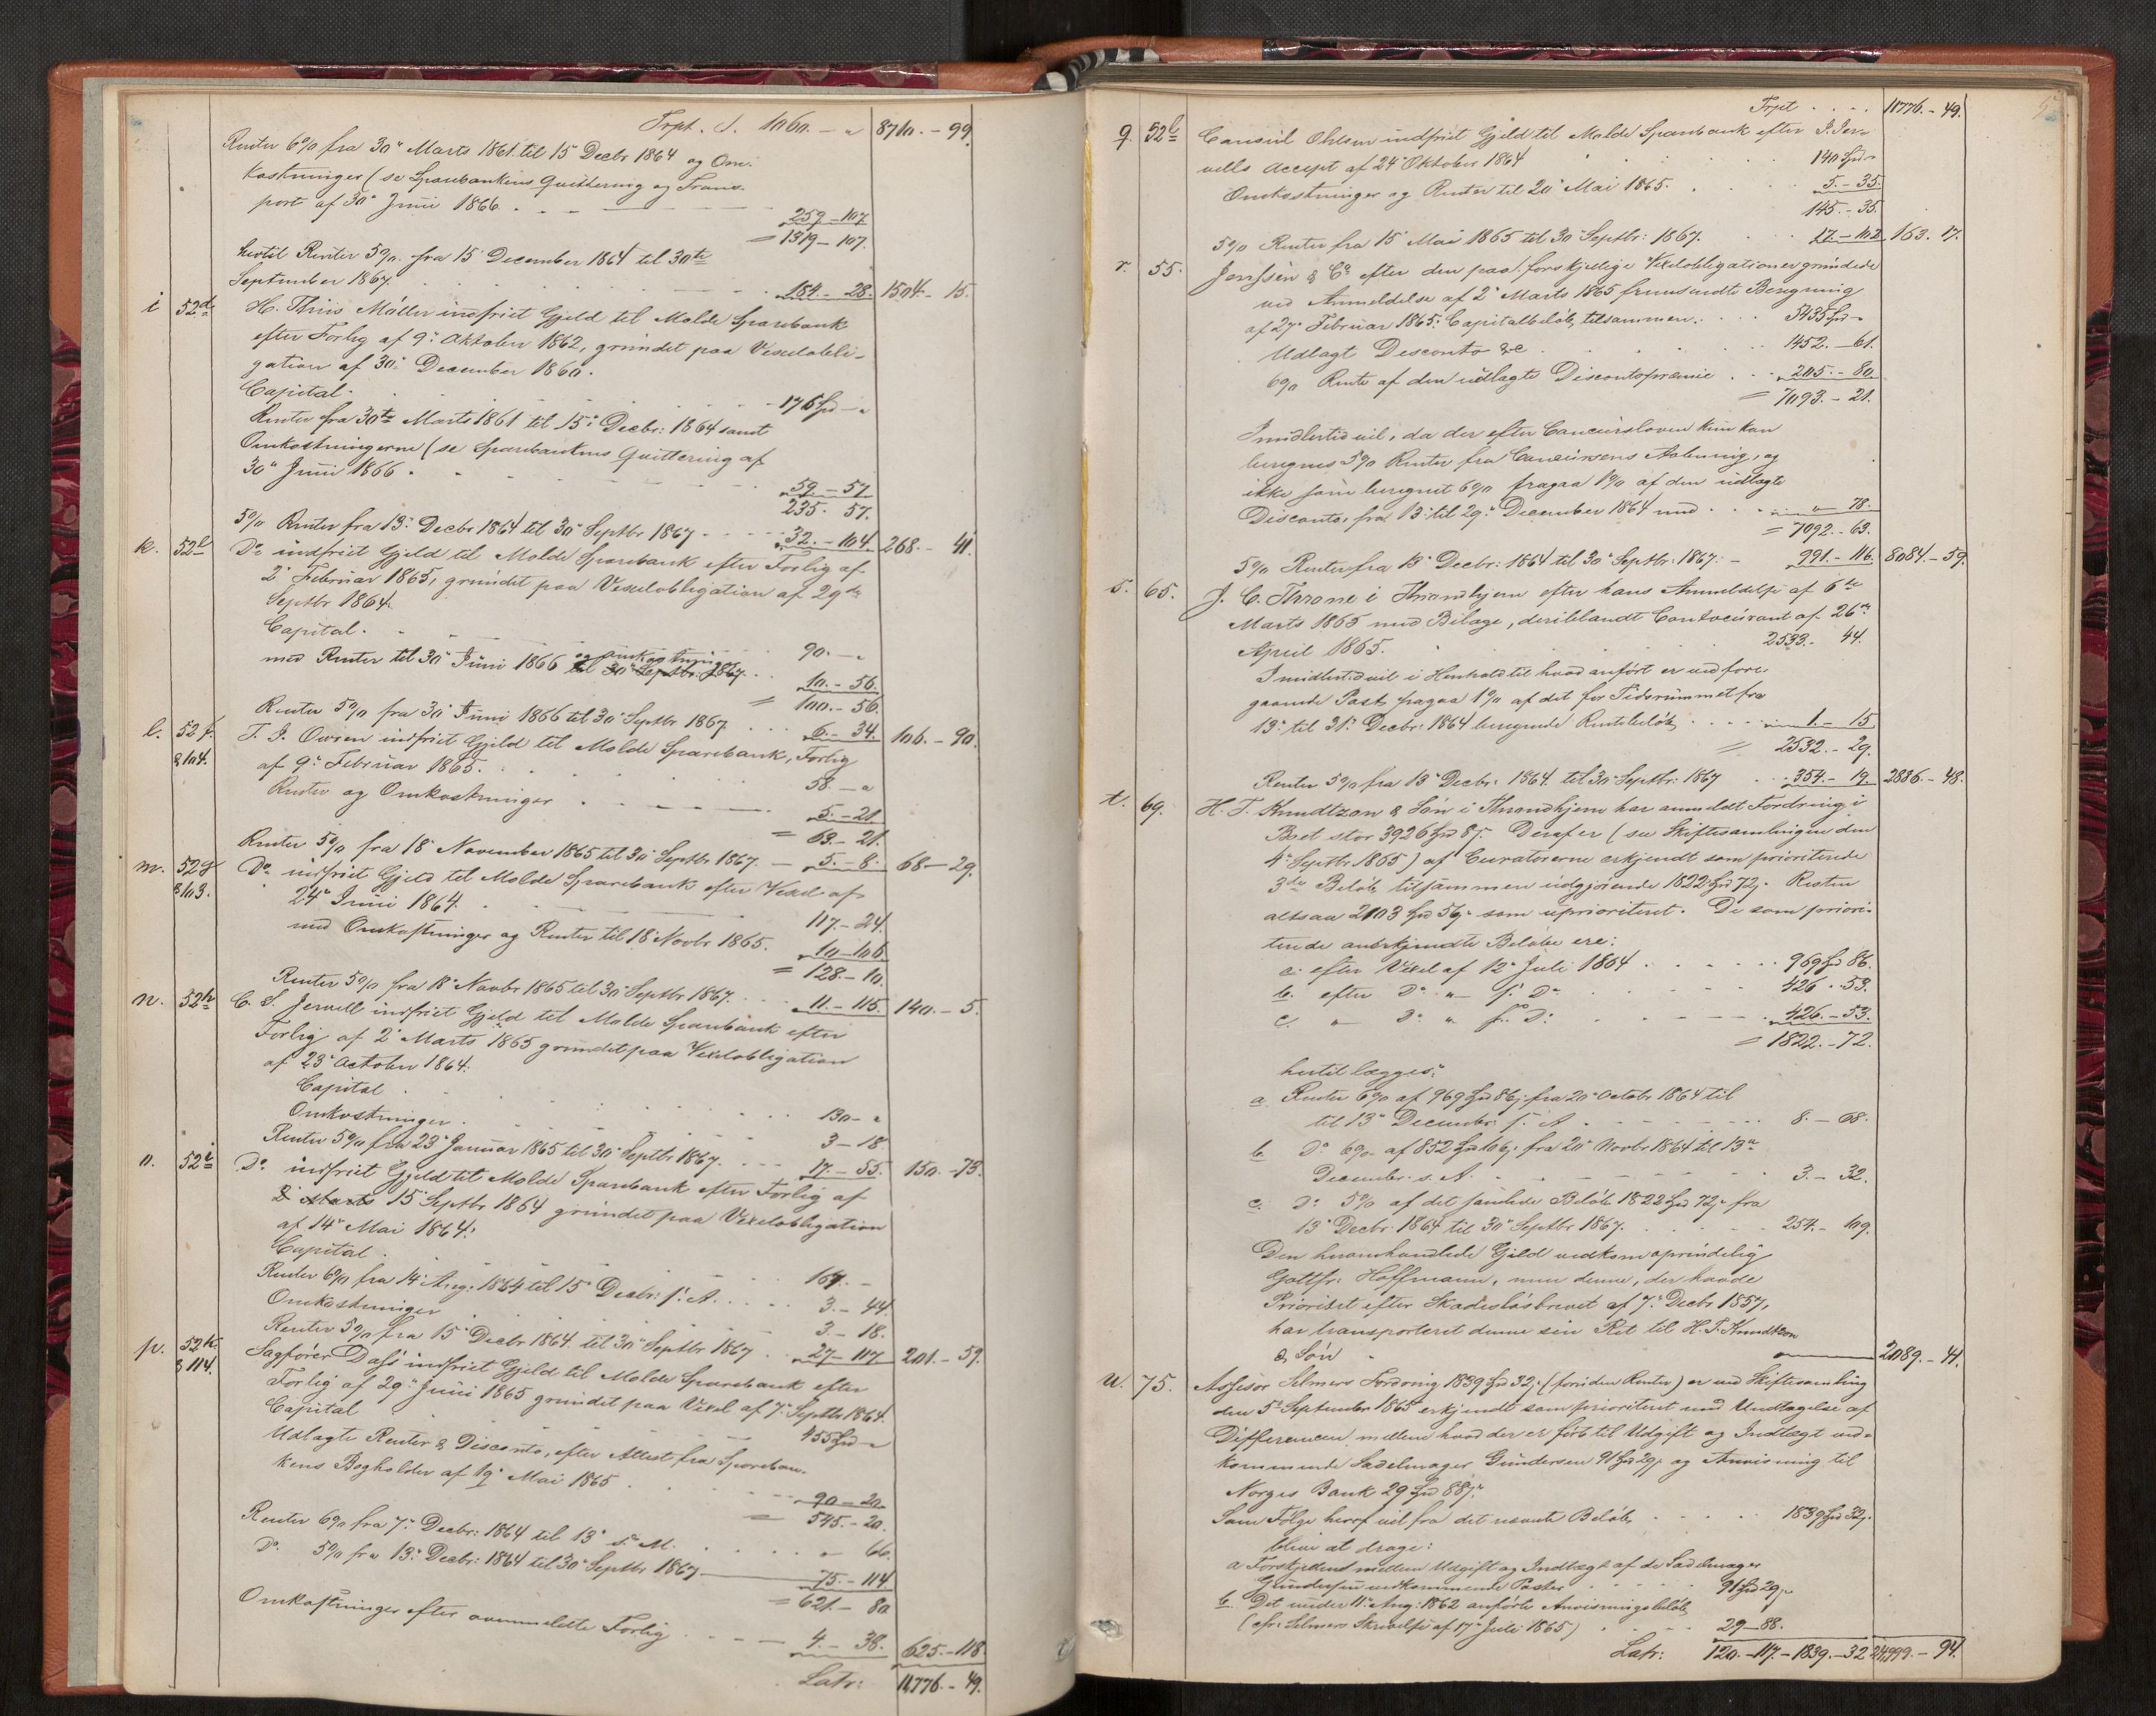 Trpt. S. 1060. - " 8710. - 99.
Renter 6% fra 30" Marts 1861 til 15" Decbr 1864 og Om-
kostninger (se Sparebankens Quittering og Trans-
port af 30" Juni 1866 . . 259 - 107
= 1319 - 107.
hertil Renter 5%. fra 15" December 1864 til 30te
September 1867. 184. - 28. 1504. - 15.
i 52d H. Thiis Møller indfriet Gjeld til Molde Sparebank
efter Forlig af 9" Oktober 1862, grundet paa Vexelobli-
gation af 30" December 1860.
Capital. 176 Spd - "
Renter fra 30te Marts 1861 til 15" Decbr: 1864 samt
Omkostningerne (se Sparebankens Quittering af
30" Juni 1866 . 59 - 57
235. 57.
5% Renter fra 13" Decbr 1864 til 30" Septbr 1867 32. - 104. 268. - 41.
k. 52e Do indfriet Gjeld til Molde Sparebank efter Forlig af
2" Februar 1865, grundet paa Vexelobligation af 29de
Septbr 1864.
Capital. 90. - "
og Omkostninger
med Renter til 30" Juni 1866 til 30" Septbr: 1867. 10. - 56.
= 100. - 56.
Renter 5% fra 30" Juni 1866 til 30" Septbr 1867 6. - 34. 106. - 90.
l. 52f. & 104. T. J. Owren indfriet Gjeld til Molde Sparebank, Forlig
af 9" Februar 1865. 58. - "
Renter og Omkostninger 5. - 21.
= 63. - 21.
Renter 5% fra 18" November 1865 til 30" Septbr 1867. - 5. - 8. 68 - 29.
m. 52g & 103. Do indfriet Gjeld til Molde Sparebank efter Vexel af
24" Juni 1864. 117. - 24.
med Omkostninger og Renter til 18" Novbr 1865. 10 - 106.
= 128. - 10.
Renter 5% fra 18" Novbr 1865 til 30" Septbr 1867. 11. - 115. 140. - 5.
n. 52h C. S. Jervell indfriet Gjeld til Molde Sparebank efter
Forlig af 2" Marts 1865 grundet paa Vexelobligation
af 23" October 1864.
Capital . 130 - "
Omkostninger . 3 - 18.
Renter 5% fra 23" Januar 1865 til 30" Septbr 1867. 17. - 55. 150. - 73.
o. 52i Do. indfriet Gjeld til Molde Sparebank efter Forlig af
2" Marts 15" Septbr 1864 grundet paa Vexelobligation
af 14" Mai 1864.
Capital . 167. -
Renter 6% fra 14" Aug: 1864 til 15" Decbr: s. A. 3. - 44.
Omkostninger 3. - 18.
Renter 5% fra 15" Decbr 1864 til 30" Septbr 1867 27 - 117 201. - 59.
p. 52k. & 114. Sagfører Dass indfriet Gjeld til Molde Sparebank efter
Forlig af 29" Juni 1865 grundet paa Vexel af 7" Septbr 1864.
Capital 455 Spd - "
Udlagte Renter & Disconto, efter Attest fra Spareban-
kens Bogholder af 19" Mai 1865 90 - 20.
= 545. - 20.
Renter 6% fra 7" Decbr: 1864 til 13" s. M. " 66.
Do. 5% fra 13" Decbr: 1864 til 30" Septbr 1867 75. - 114
= 621. - 80.
Omkostninger efter ovenmeldte Forlig 4. - 38. 625. - 118.
Latr: 11,776. - 49.
Trpt . . . . 11776. - 49.
q. 52l. Consul Ohlsen indfriet Gjeld til Molde Sparebank efter J. Jer-
vells Accept af 24" Oktober 1864 140 Spd "
Omkostninger og Renter til 20" Mai 1865. 5. - 35.
145. - 35.
5% Renter fra 15" Mai 1865 til 30" Septbr: 1867. 17 - 102 163. 17.
r. 55. Jenssen & Co efter den paa forskjellige Vexelobligationer grundede
ved Anmeldelse af 2" Marts 1865 fremsendte Beregning
af 27" Februar 1865: Capitalbeløb, tilsammen. 5435 Spd "
Udlagt Disconto &c 1452. - 61.
6% Rente af den udlagte Discontopræmie 205. - 80.
= 7093. - 21.
Imidlertid vil, da der efter Concursloven kun kan
beregnes 5% Renter fra Concursens Aabning, og
ikke som beregnet 6% fragaa 1% af den udlagte
Disconto, fra 13" til 29" December 1864 med " - 78.
= 7092. - 63.
5% Renter fra 13" Decbr: 1864 til 30" Septbr: 1867. - 991. - 116. 8084. - 59.
s. 65. J. C. Throne i Throndhjem efter hans Anmeldelse af 6te
Marts 1865 med Bilage, deriblandt Contocurant af 26"
April 1865. 2533. - 44.
Imidlertid vil i Henhold til hvad anført er ved fore-
gaaende Post, fragaa 1% af det for Tidsrummet fra
13" til 31" Decbr: 1864 beregnede Rentebeløb, 1. - 15
= 2532. - 29.
Renter 5% fra 13" Decbr: 1864 til 30" Septbr: 1867 354. - 19. 2886. - 48.
t. 69. H. T. Knudtzon & Søn i Throndhjem har anmeldt Fordring i
Boet stor 3926 Spd 8 s. Deraf er (see Skiftesamlingen den
4" Septbr 1865) af Curatorerne erkjendt som prioriterede
3de Beløb, tilsammen udgjørende 1822 Spd 72 s. Resten
altsaa 2103 Spd 56 s som uprioriteret. De som priori-
terede anerkjendte Beløb ere:
a. efter Vexel af 12" Juli 1864 969 Spd 86.
b. efter Do " f. Do 426 . . 53.
c. " Do. " f. Do. 426. - 53.
= 1822. - 72.
hertil lægges:
a. Renter 6% af 969 Spd 86 s. fra 20" Octobr 1864 til
til 13" December s. A. 8. - 68.
b. Do 6% af 852 Spd 106 s. fra 20" Novbr 1864 til 13"
December s. A. 3. - 32.
c. Do. 5% af det samlede Beløb 1822 Spd 72 s. fra
13" Decbr: 1864 til 30" Septbr 1867. 254. - 109.
Den heromhandlede Gjeld vedkom oprindelig
Gottfr: Hoffmann, men denne, der havde
Prioritet efter Skadesløsbrevet af 7" Decbr 1857,
har transporteret denne sin Ret til H. T. Knudtzon
& Søn 2089. - 41.
u. 75. Assessor Selmers Fordring 1839 Spd 32 s. (foruden Renter) er ved Skiftesamling
den 5" September 1865 erkjendt som prioriteret med Undtagelse af
Differencen mellem hvad der er ført til Udgift og Indtægt ved-
kommende Sadelmager Gundersen 91 Spd 29 s. og Anvisning til
Norges Bank 29 Spd 88 s.
Som Følge heraf vil fra det nævnte Beløb, 1839 Spd 32 s.
blive at drage:
a. Forskjellen mellem Udgift og Indtægt af de Sadelmager
Gundersen vedkommende Poster 91 Spd 29 s.
b. Det under 11" Aug: 1862 anførte Anvisningsbeløb,
(cfr: Selmers Skrivelse af 17" Juli 1865) 29 - 88.
Latr: 120. - 117. - 1839. - 32 24,999. - 94.